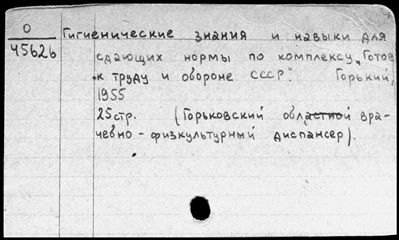 О
45626
Гигиенические знания и навыки для
сдающих нормы по комплексу „Готов
к труду и обороне СССР". Горький,
1955
25стр. (Горьковский областной вра-
чебно-физкультурный диспансер).